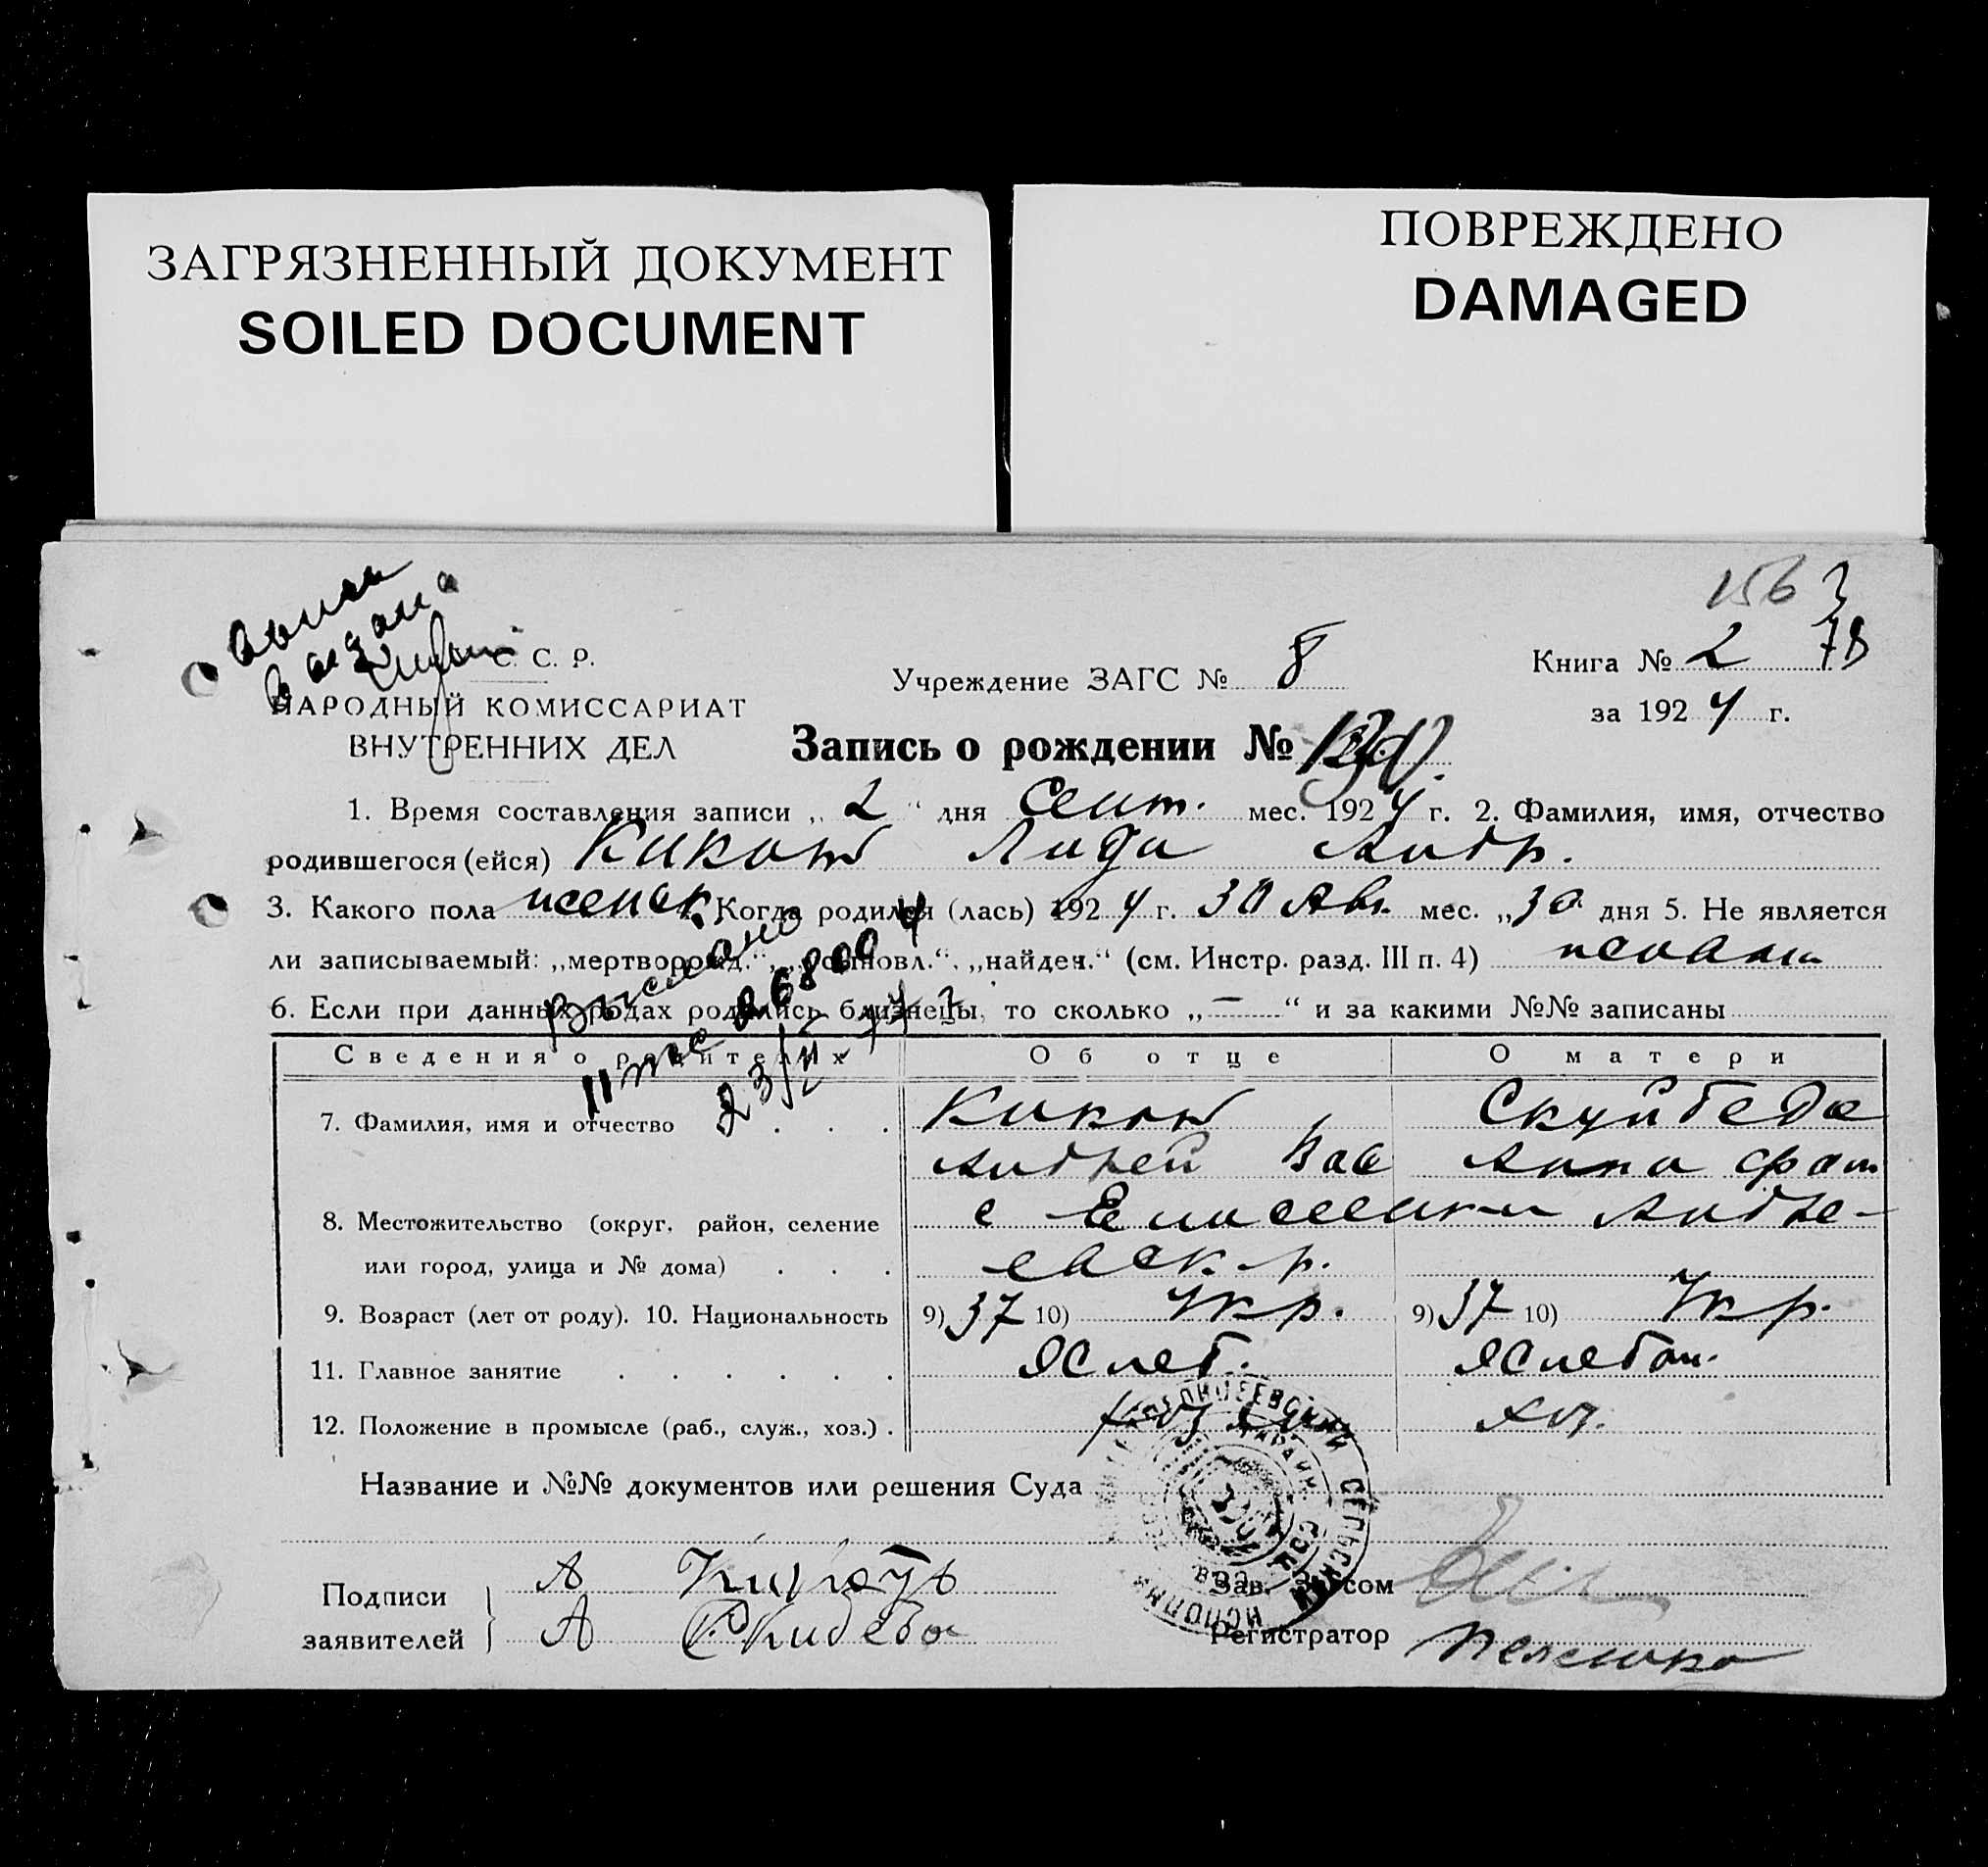 ЗАГРЯЗНЕННЫЙ ДОКУМЕНТ
SOILED DOCUMENT
ПОВРЕЖДЕНО
DAMAGED
156
78
С. С. Р.
НАРОДНЫЙ КОМИССАРИАТ
ВНУТРЕННИХ ДЕЛ
Учреждение ЗАГС № 8
Книга № 2
за 1924 г.
Запись о рождении №
1. Время составления записи „ 2 “ дня Сент. мес. 1924 г. 2. Фамилия, имя, отчество
родившегося (ейся) Кикот Лида Андр.
3. Какого пола женск. Когда родился (лась) 1924 г. 30 Авг. мес. „30 дня 5. Не является
ли записываемый: „мертворожд.“, „усыновл.“, „найден.“ (см. Инстр. разд. III п. 4)
6. Если при данных родах родились близнецы, то сколько „ — “ и за какими №№ записаны
Сведения о родителях Об отце О матери
7. Фамилия, имя и отчество . . . Кикот Скуйбеда
Андрей Вас Анна
8. Местожительство (округ, район, селение с Андре-
или город, улица и № дома) . . . евск. р.
9. Возраст (лет от роду). 10. Национальность 9) 37 10) Укр. 9) 37 10) Укр.
11. Главное занятие . . . . . .
12. Положение в промысле (раб., служ., хоз.) . хоз.
Название и №№ документов или решения Суда
Подписи
заявителей
А
А
Зав. Загсом
Регистратор